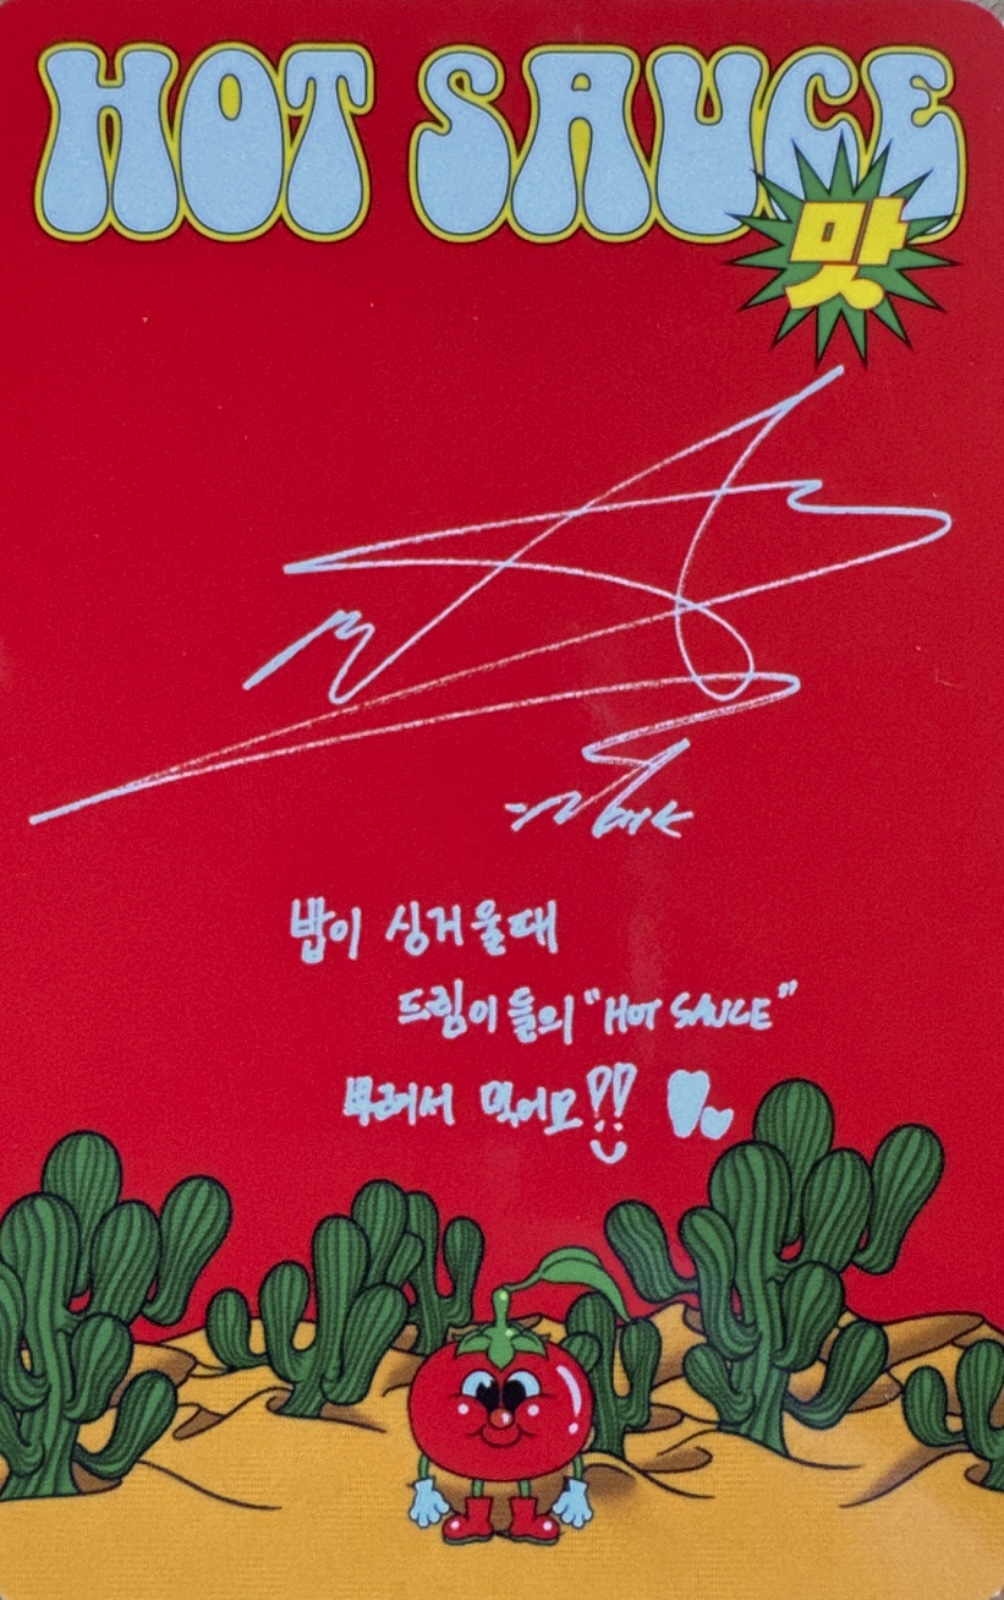 HOT SAUCE
맛
-Mark
밥이 싱거울때
드림이들의 "HOT SAUCE"
뿌려서 먹어요!!